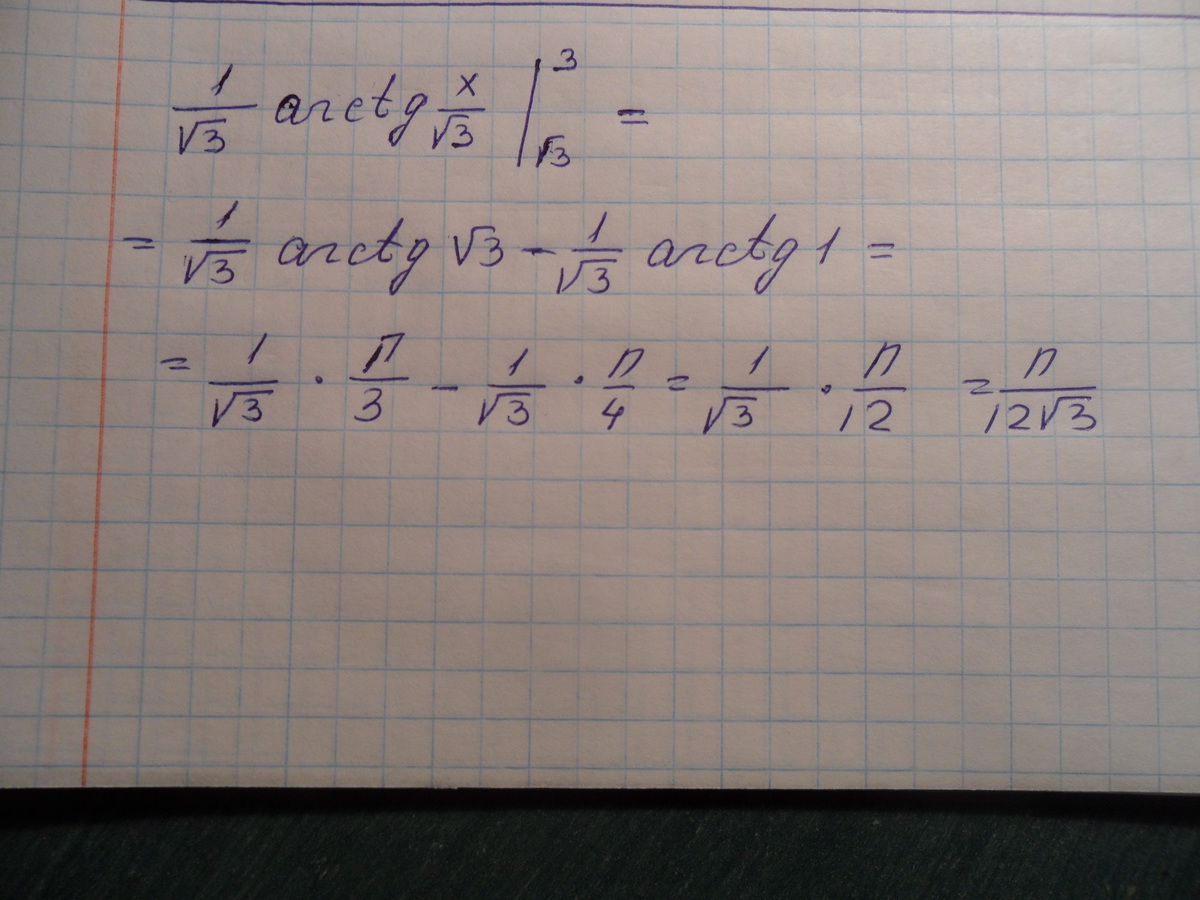 1/√3 arctg x/√3 |_{√3}^{3} =
= 1/√3 arctg √3 - 1/√3 arctg 1 =
= 1/√3 · π/3 - 1/√3 · π/4 = 1/√3 · π/12 = π/12√3